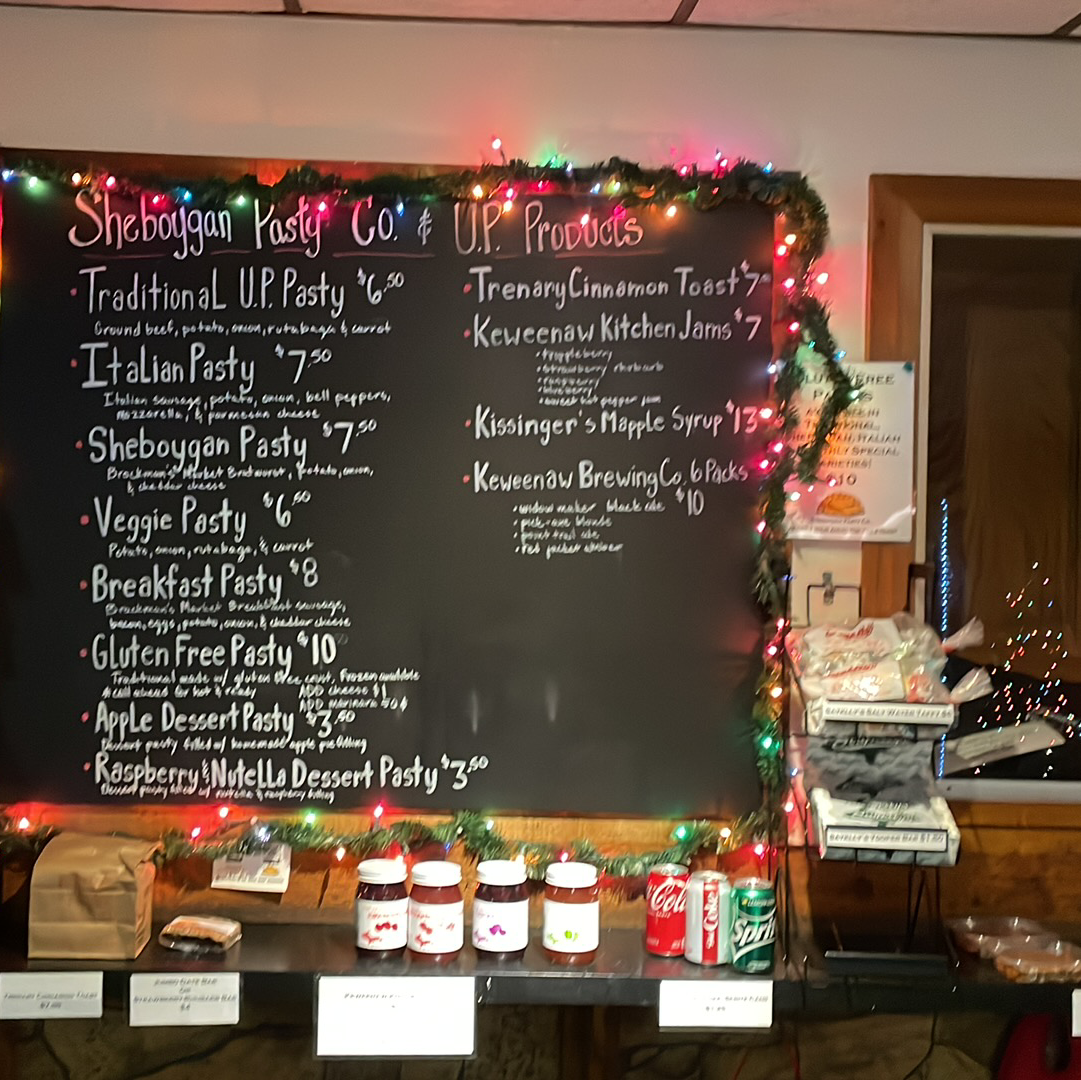 Sheboygan Pasty Co. & U.P. Products
• Traditional U.P. Pasty $6.50
Ground beef, potato, onion, rutabaga & carrot
• Italian Pasty $7.50
Italian sausage, potato, onion, bell peppers,
mozzarella, & parmesan cheese
• Sheboygan Pasty $7.50
Brockman's Market Bratwurst, potato, onion,
& cheddar cheese
• Veggie Pasty $6.50
Potato, onion, rutabaga, & carrot
• Breakfast Pasty $8
Brockman's Market Breakfast sausage,
bacon, eggs, potato, onion, & cheddar cheese
• Gluten Free Pasty $10
Traditional made w/ gluten free crust, Frozen available
& call ahead for hot & ready
ADD cheese $1
ADD marinara 50¢
• Apple Dessert Pasty $3.50
Dessert pasty filled w/ homemade apple pie filling
• Raspberry & Nutella Dessert Pasty $3.50
Dessert pasty filled w/ nutella & raspberry filling
• Trenary Cinnamon Toast $7
• Keweenaw Kitchen Jams $7
• strawberry rhubarb
• raspberry
• blueberry
• sweet hot pepper jam
• Kissinger's Mapple Syrup $13
• Keweenaw Brewing Co. 6 Packs
$10
• widow maker black ale
• pick-axe blonde
• point trail ale
• red jacket amber
Coca-Cola
Coke
Sprite